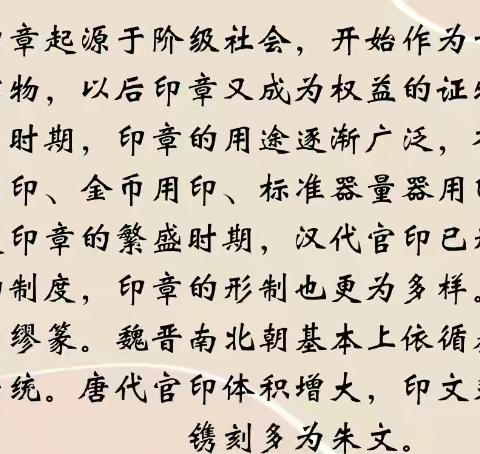 章起源于阶级社会，开始作为
物，以后印章又成为权益的证
时期，印章的用途逐渐广泛，
印、金币用印、标准器量器用
印章的繁盛时期，汉代官印已
制度，印章的形制也更为多样。
缪篆。魏晋南北朝基本上依循
统。唐代官印体积增大，印文
镌刻多为朱文。